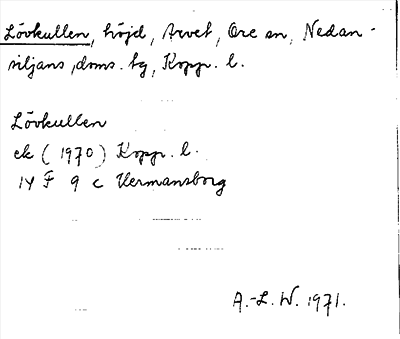 Lövkullen, höjd, Arvet, Ore sn, Nedan-
siljans doms. tg, Kopp. l.
Lövkullen
ek (1970) Kopp. l.
14 F 9 c Hermansborg
A.-L. W. 1971.